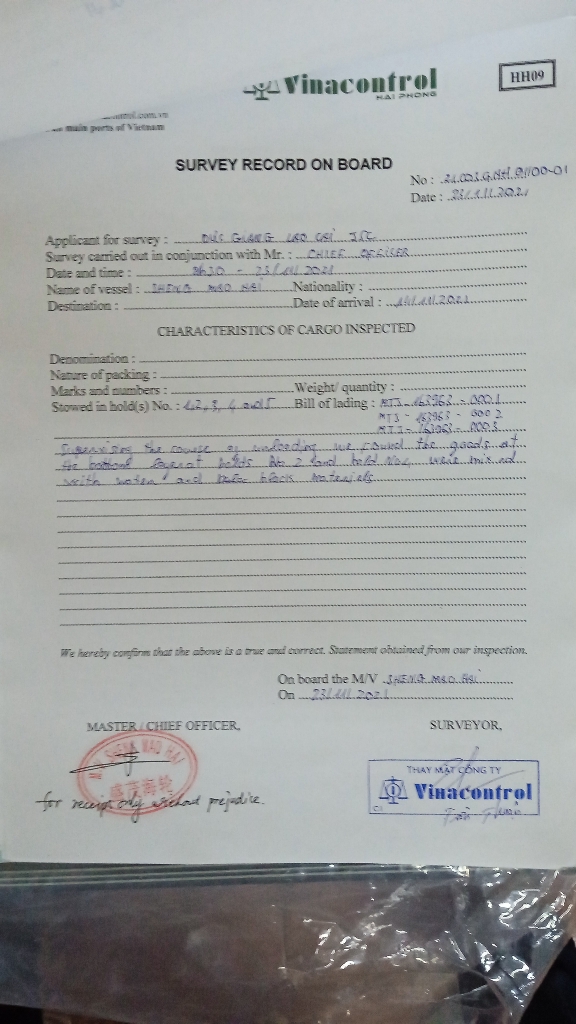 Vinacontrol
HAI PHONG
HH09
main ports of Vietnam
SURVEY RECORD ON BOARD
No :
Date : 23/11/2021
Applicant for survey : DUC GIANG LAO CAI JSC
Survey carried out in conjunction with Mr. : CHIEF OFFICER
Date and time : 8h30 - 23/11/2021
Name of vessel : SHENG MAO HAI Nationality :
Destination : Date of arrival : /11/2021
CHARACTERISTICS OF CARGO INSPECTED
Denomination :
Nature of packing :
Marks and numbers : Weight/ quantity :
Stowed in hold(s) No. : 1,2,3,4 and 5 Bill of lading : MTJ - 163963 - 0001
MTJ - 163963 - 0002
MTJ - 163963 - 0003
Supervising the course of unloading we found the goods at
the bottom holds No 2 and hold No4 were mixed
with water and black materials
We hereby confirm that the above is a true and correct. Statement obtained from our inspection.
On board the M/V SHENG MAO HAI
On 23/11/2021
MASTER / CHIEF OFFICER,
SURVEYOR,
SHENG MAO HAI
盛茂海轮
for receipt only without prejudice.
THAY MẶT CÔNG TY
Vinacontrol